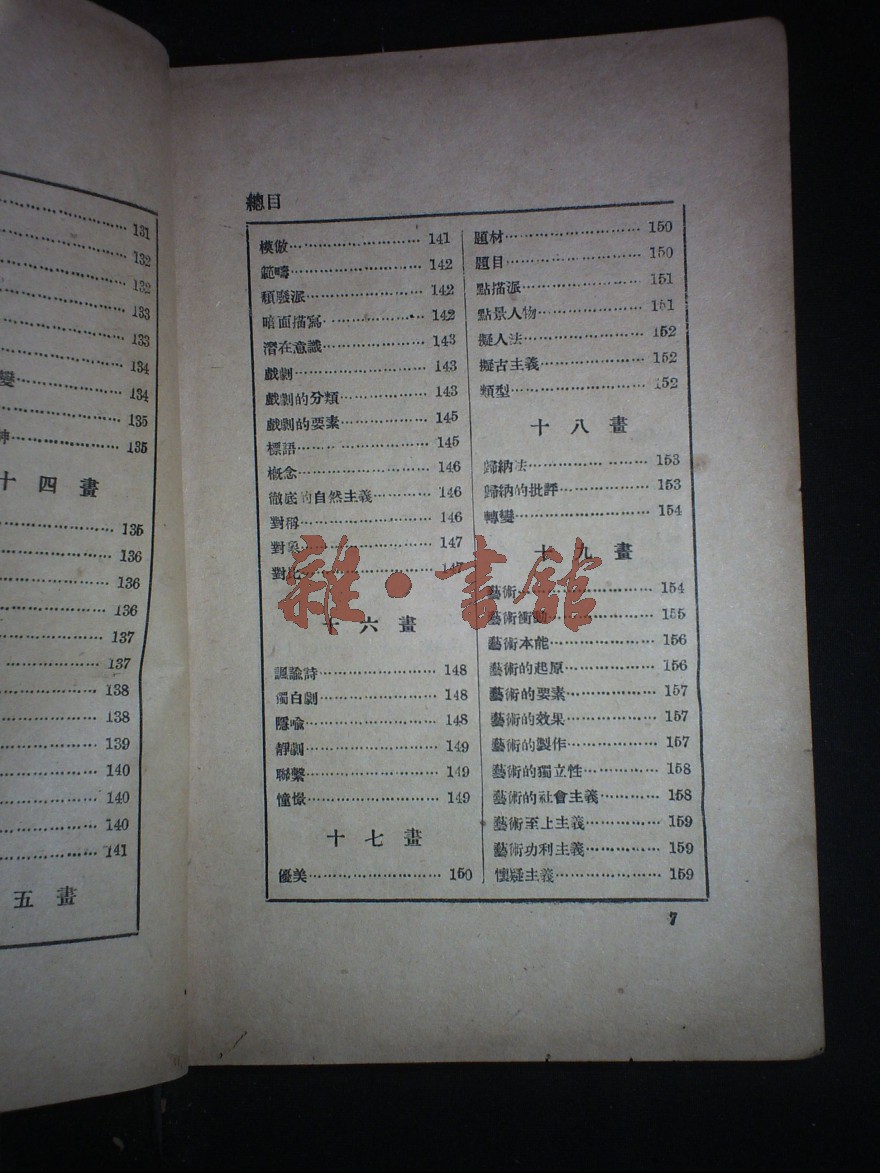 131
132
132
133
133
134
變 134
135
神 135
十四畫
135
136
136
136
137
137
138
138
139
140
140
140
141
五畫
總目
模倣 141
範疇 142
頹廢派 142
暗面描寫 142
潛在意識 143
戲劇 143
戲劇的分類 143
戲劇的要素 145
標語 145
概念 146
徹底的自然主義 146
對稱 146
對象 147
對比 147
十六畫
諷諭詩 148
獨白劇 148
隱喩 148
靜劇 149
聯繫 149
憧憬 149
十七畫
優美 150
題材 150
題目 150
點描派 151
點景人物 151
擬人法 152
擬古主義 152
類型 152
十八畫
歸納法 153
歸納的批評 153
轉變 154
十九畫
藝術 154
藝術衝動 155
藝術本能 156
藝術的起原 156
藝術的要素 157
藝術的效果 157
藝術的製作 157
藝術的獨立性 158
藝術的社會主義 158
藝術至上主義 159
藝術功利主義 159
懷疑主義 159
7
雜·書舘